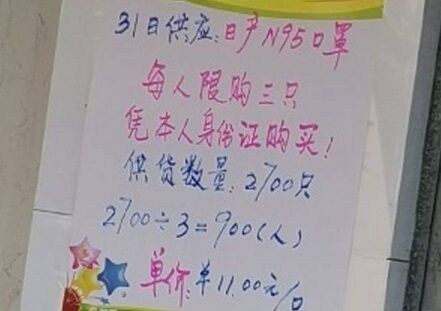 31日供应:日产N95口罩
每人限购三只
凭本人身份证购买!
供货数量:2700只
2700÷3=900(人)
单价:¥11.00元/口